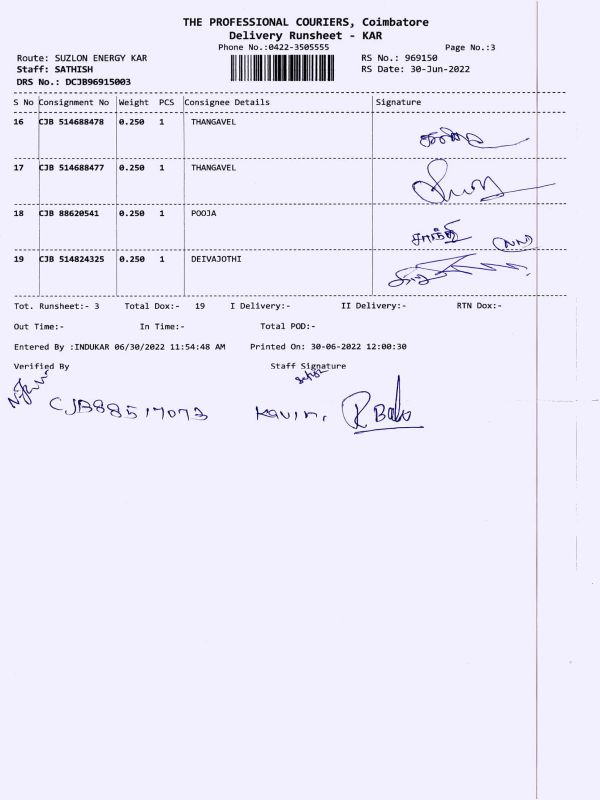 THE PROFESSIONAL COURIERS, Coimbatore
Delivery Runsheet - KAR
Phone No.:0422-3505555 Page No.:3
Route: SUZLON ENERGY KAR RS No.: 969150
Staff: SATHISH RS Date: 30-Jun-2022
DRS No.: DCJB96915003
S No Consignment No Weight PCS Consignee Details Signature
16 CJB 514688478 0.250 1 THANGAVEL
17 CJB 514688477 0.250 1 THANGAVEL
18 CJB 88620541 0.250 1 POOJA
19 CJB 514824325 0.250 1 DEIVAJOTHI
Tot. Runsheet:- 3 Total Dox:- 19 I Delivery:- II Delivery:- RTN Dox:-
Out Time:- In Time:- Total POD:-
Entered By :INDUKAR 06/30/2022 11:54:48 AM Printed On: 30-06-2022 12:00:30
Verified By Staff Signature
CJB88517073 Kavin, R Babu